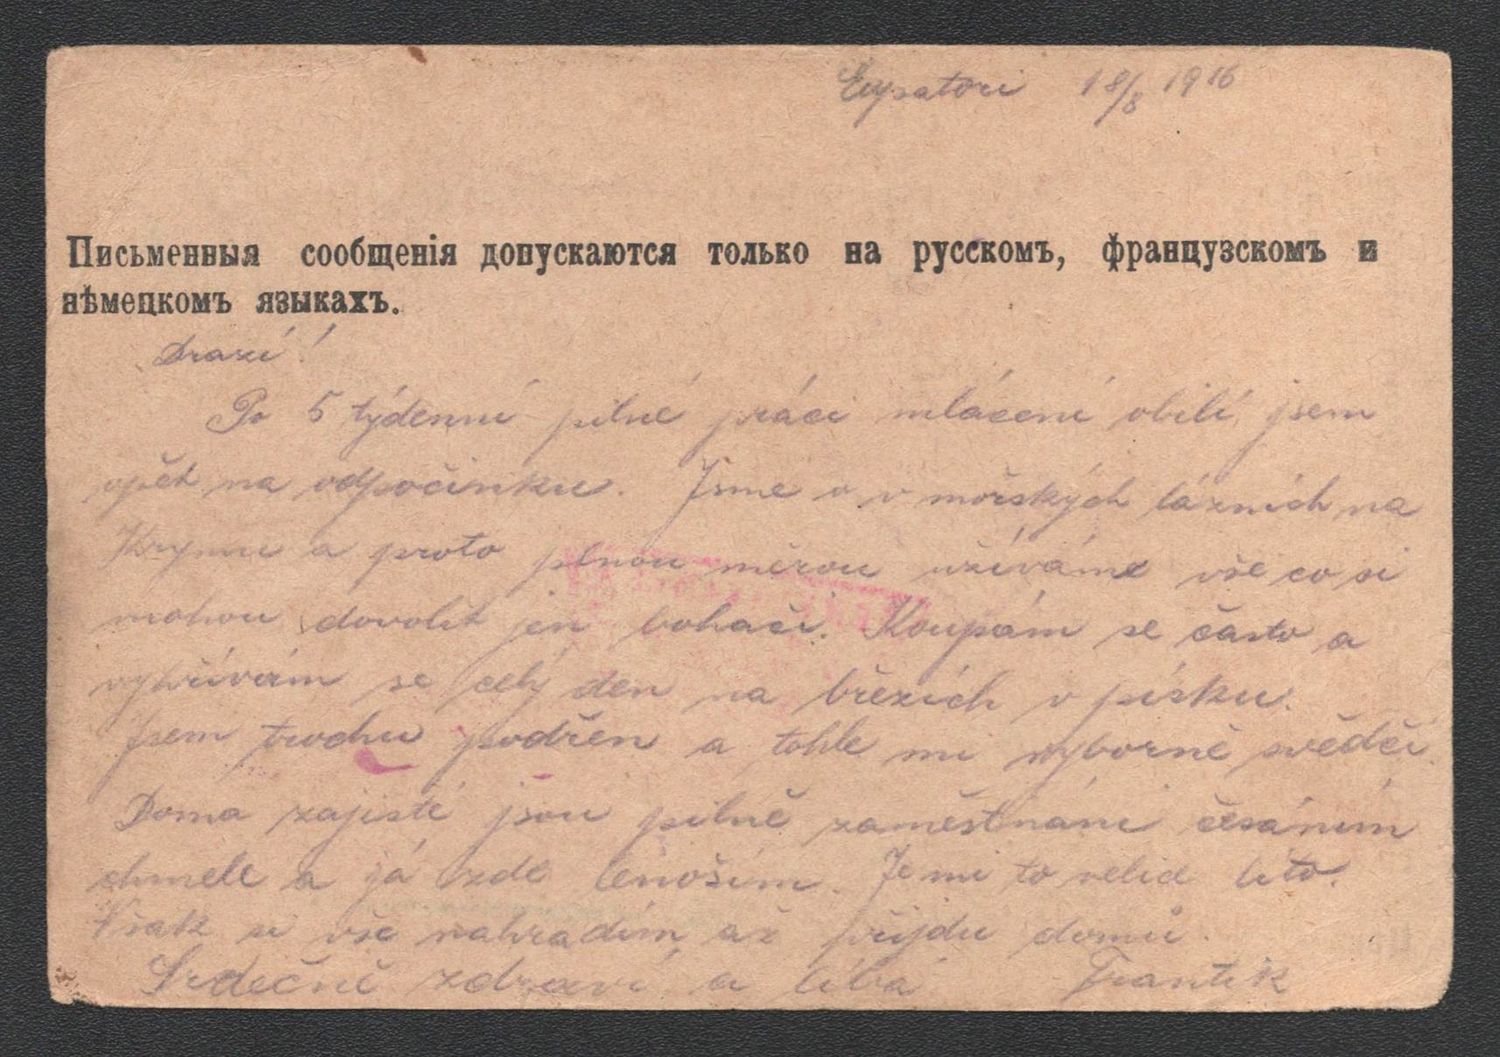 Eupatori 18/8 1916
Письменныя сообщенія допускаются только на русскомъ, французскомъ и
нѣмецкомъ языкахъ.
Drazí!
Po 5 týdenní pilné práci mlácení obilí jsem
opět na odpočinku. Jsme v mořských lázních na
Krymu a proto plnou měrou užíváme vše co si
mohou dovolit jen boháči. Koupám se často a
vyhřívám se celý den na březích v písku.
Jsem trochu podřen a tohle mi výborně svědčí.
Doma zajisté jsou pilně zaměstnáni česáním
chmele a já zde lenoším. Je mi to velice líto.
Však si vše nahradím až přijdu domů.
Srdečně zdraví a líbá Frantík